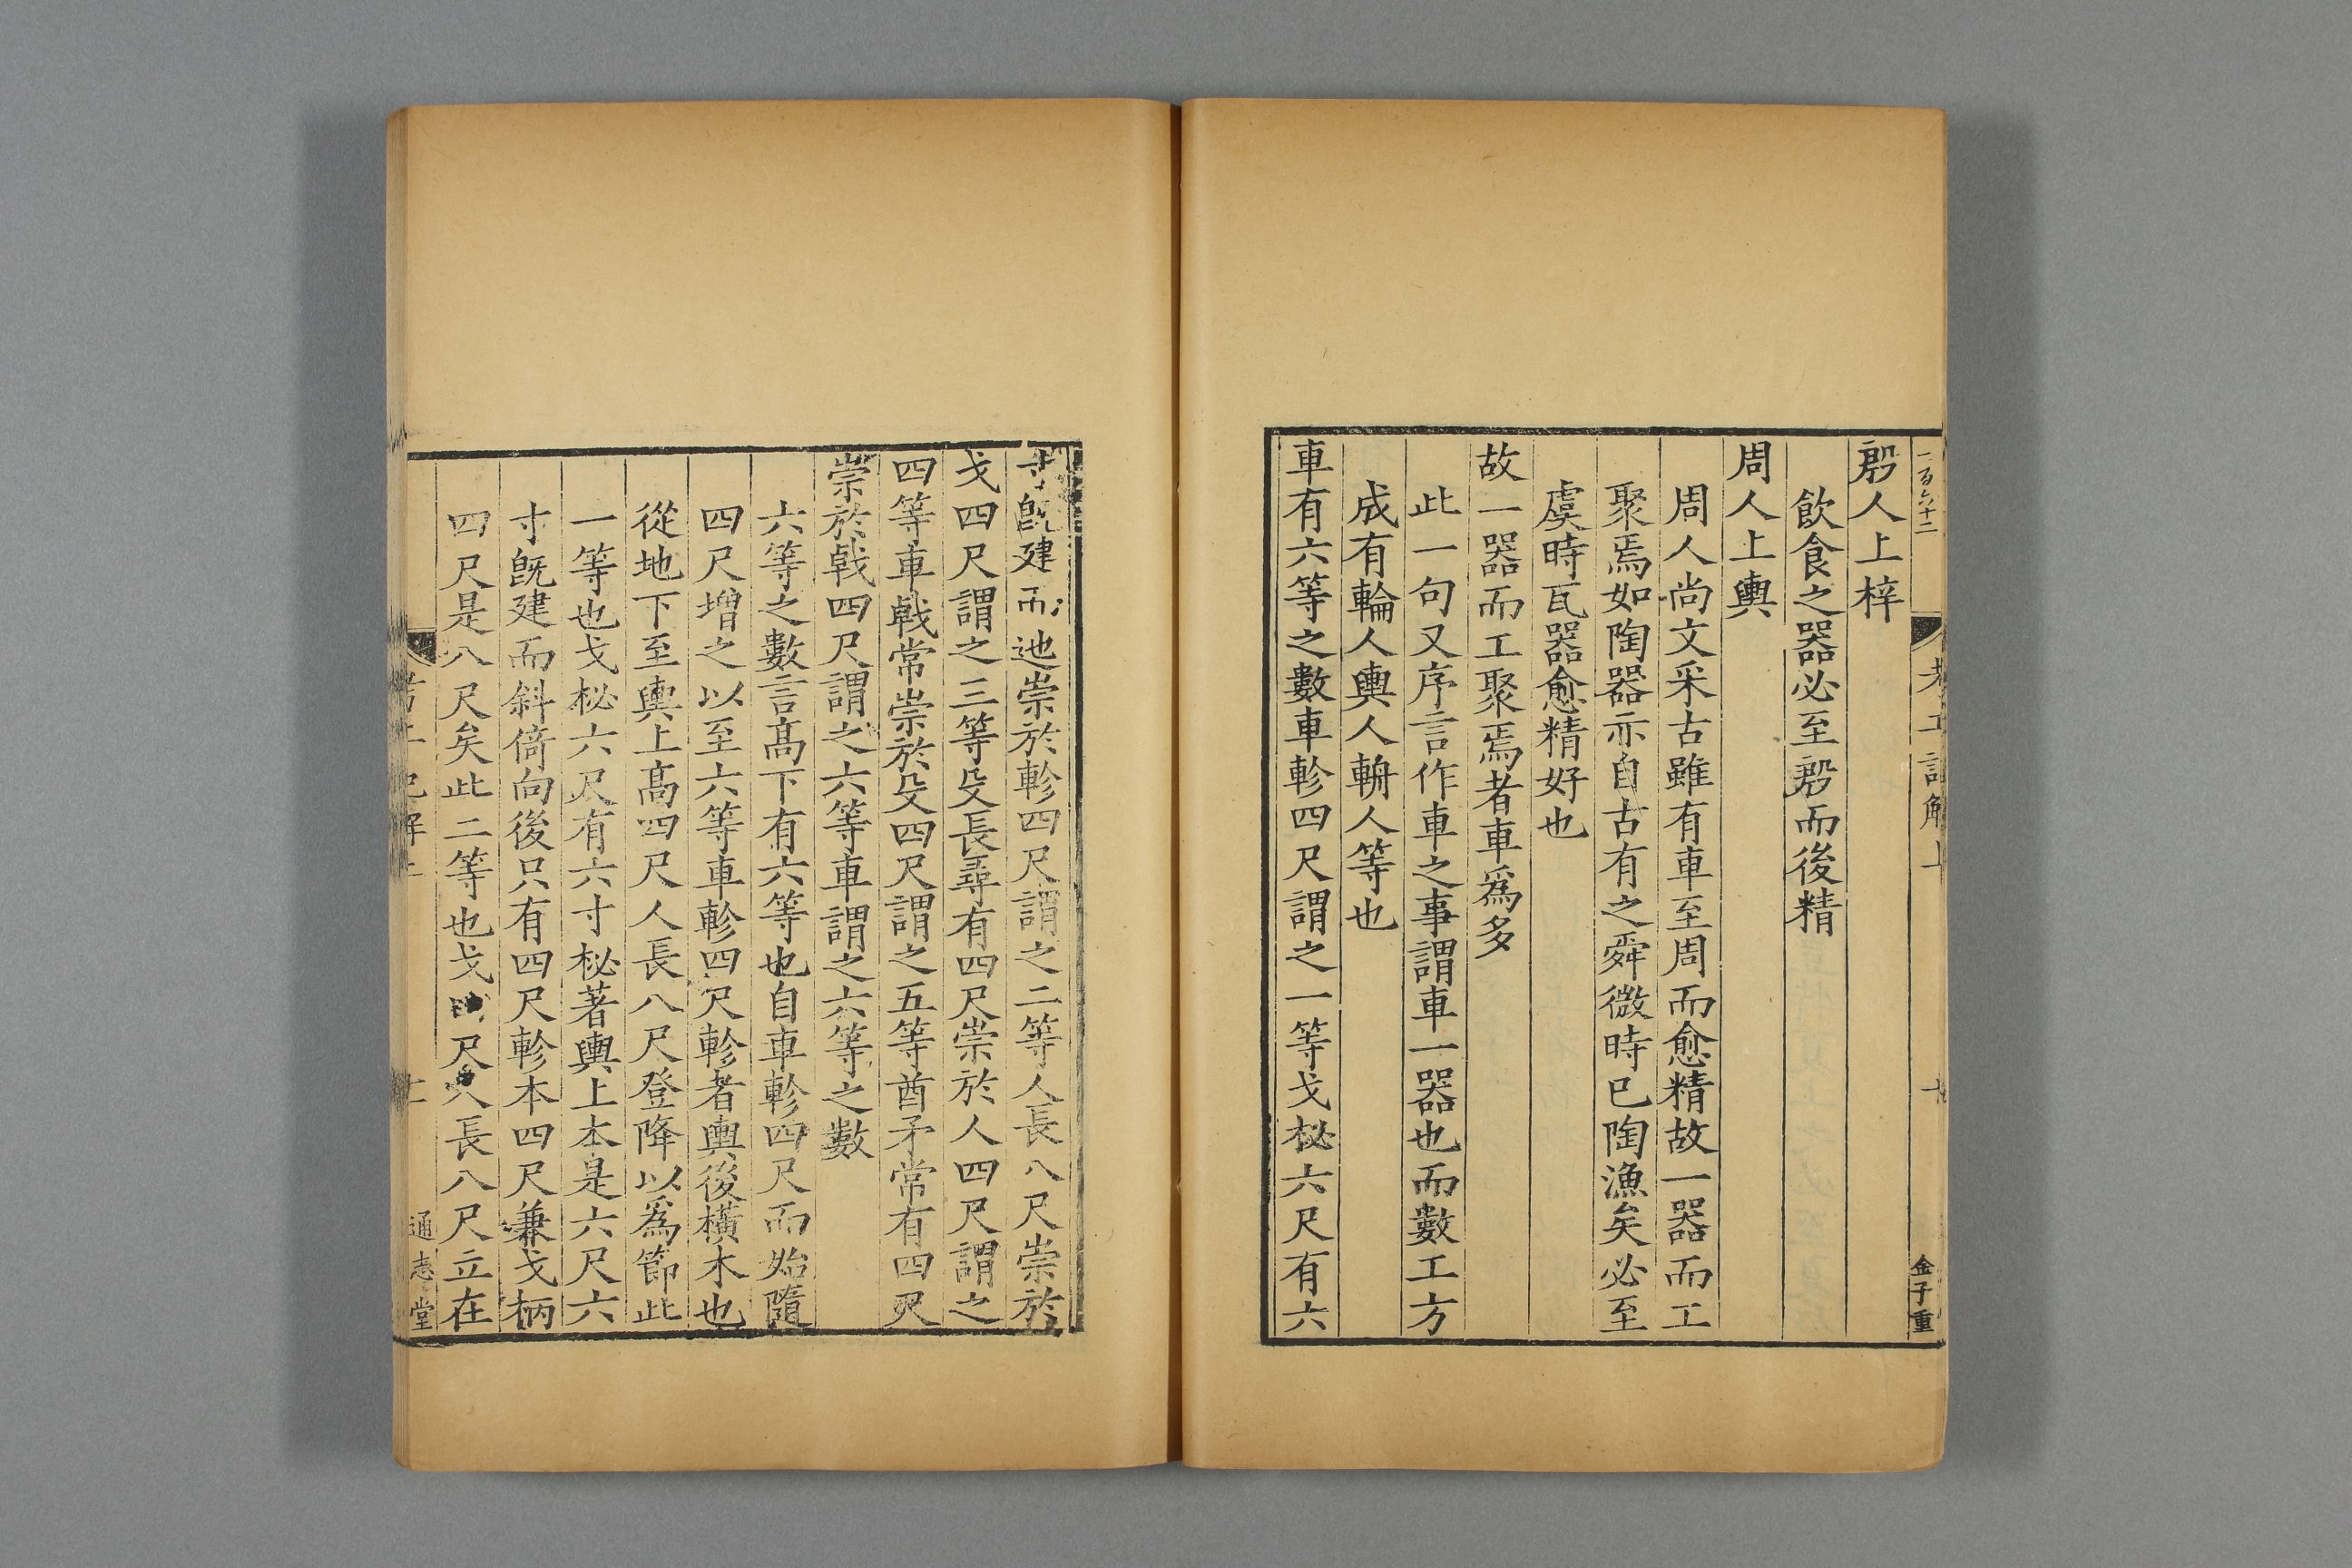 一百六十二
金子重
殷人上梓
飲食之器必至殷而後精
周人上輿
周人尚文采古雖有車至周而愈精故一器而工
聚焉如陶器亦自古有之舜微時已陶漁矣必至
虞時瓦器愈精好也
故一器而工聚焉者車爲多
此一句又序言作車之事謂車一器也而數工方
成有輪人輿人輈人等也
車有六等之數車軫四尺謂之一等戈柲六尺有六
寸旣建而迆崇於軫四尺謂之二等人長八尺崇於
戈四尺謂之三等殳長尋有四尺崇於人四尺謂之
四等車戟常崇於殳四尺謂之五等酋矛常有四尺
崇於戟四尺謂之六等車謂之六等之數
六等之數言高下有六等也自車軫四尺而始隨
四尺增之以至六等車軫四尺軫者輿後橫木也
從地下至輿上高四尺人長八尺登降以爲節此
一等也戈柲六尺有六寸柲著輿上本是六尺六
寸旣建而斜倚向後只有四尺軫本四尺兼戈柄
四尺是八尺矣此二等也戈四尺人長八尺立在
通志堂